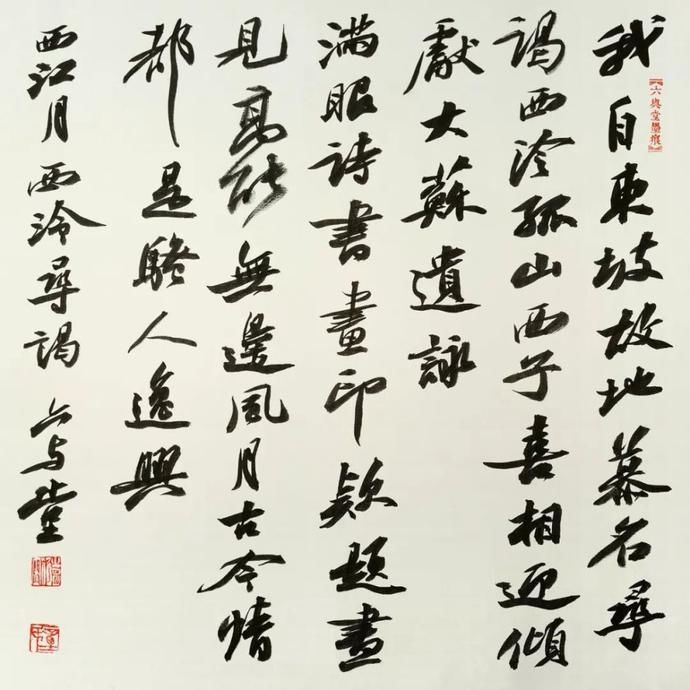 六與堂墨痕
我自東坡故地慕名尋
謁西泠孤山西子喜相迎傾
獻大蘇遺詠
滿眼詩書畫印欵題盡
見高能無邊風月古今情
都是騷人逸興
西江月西泠尋謁 六与堂